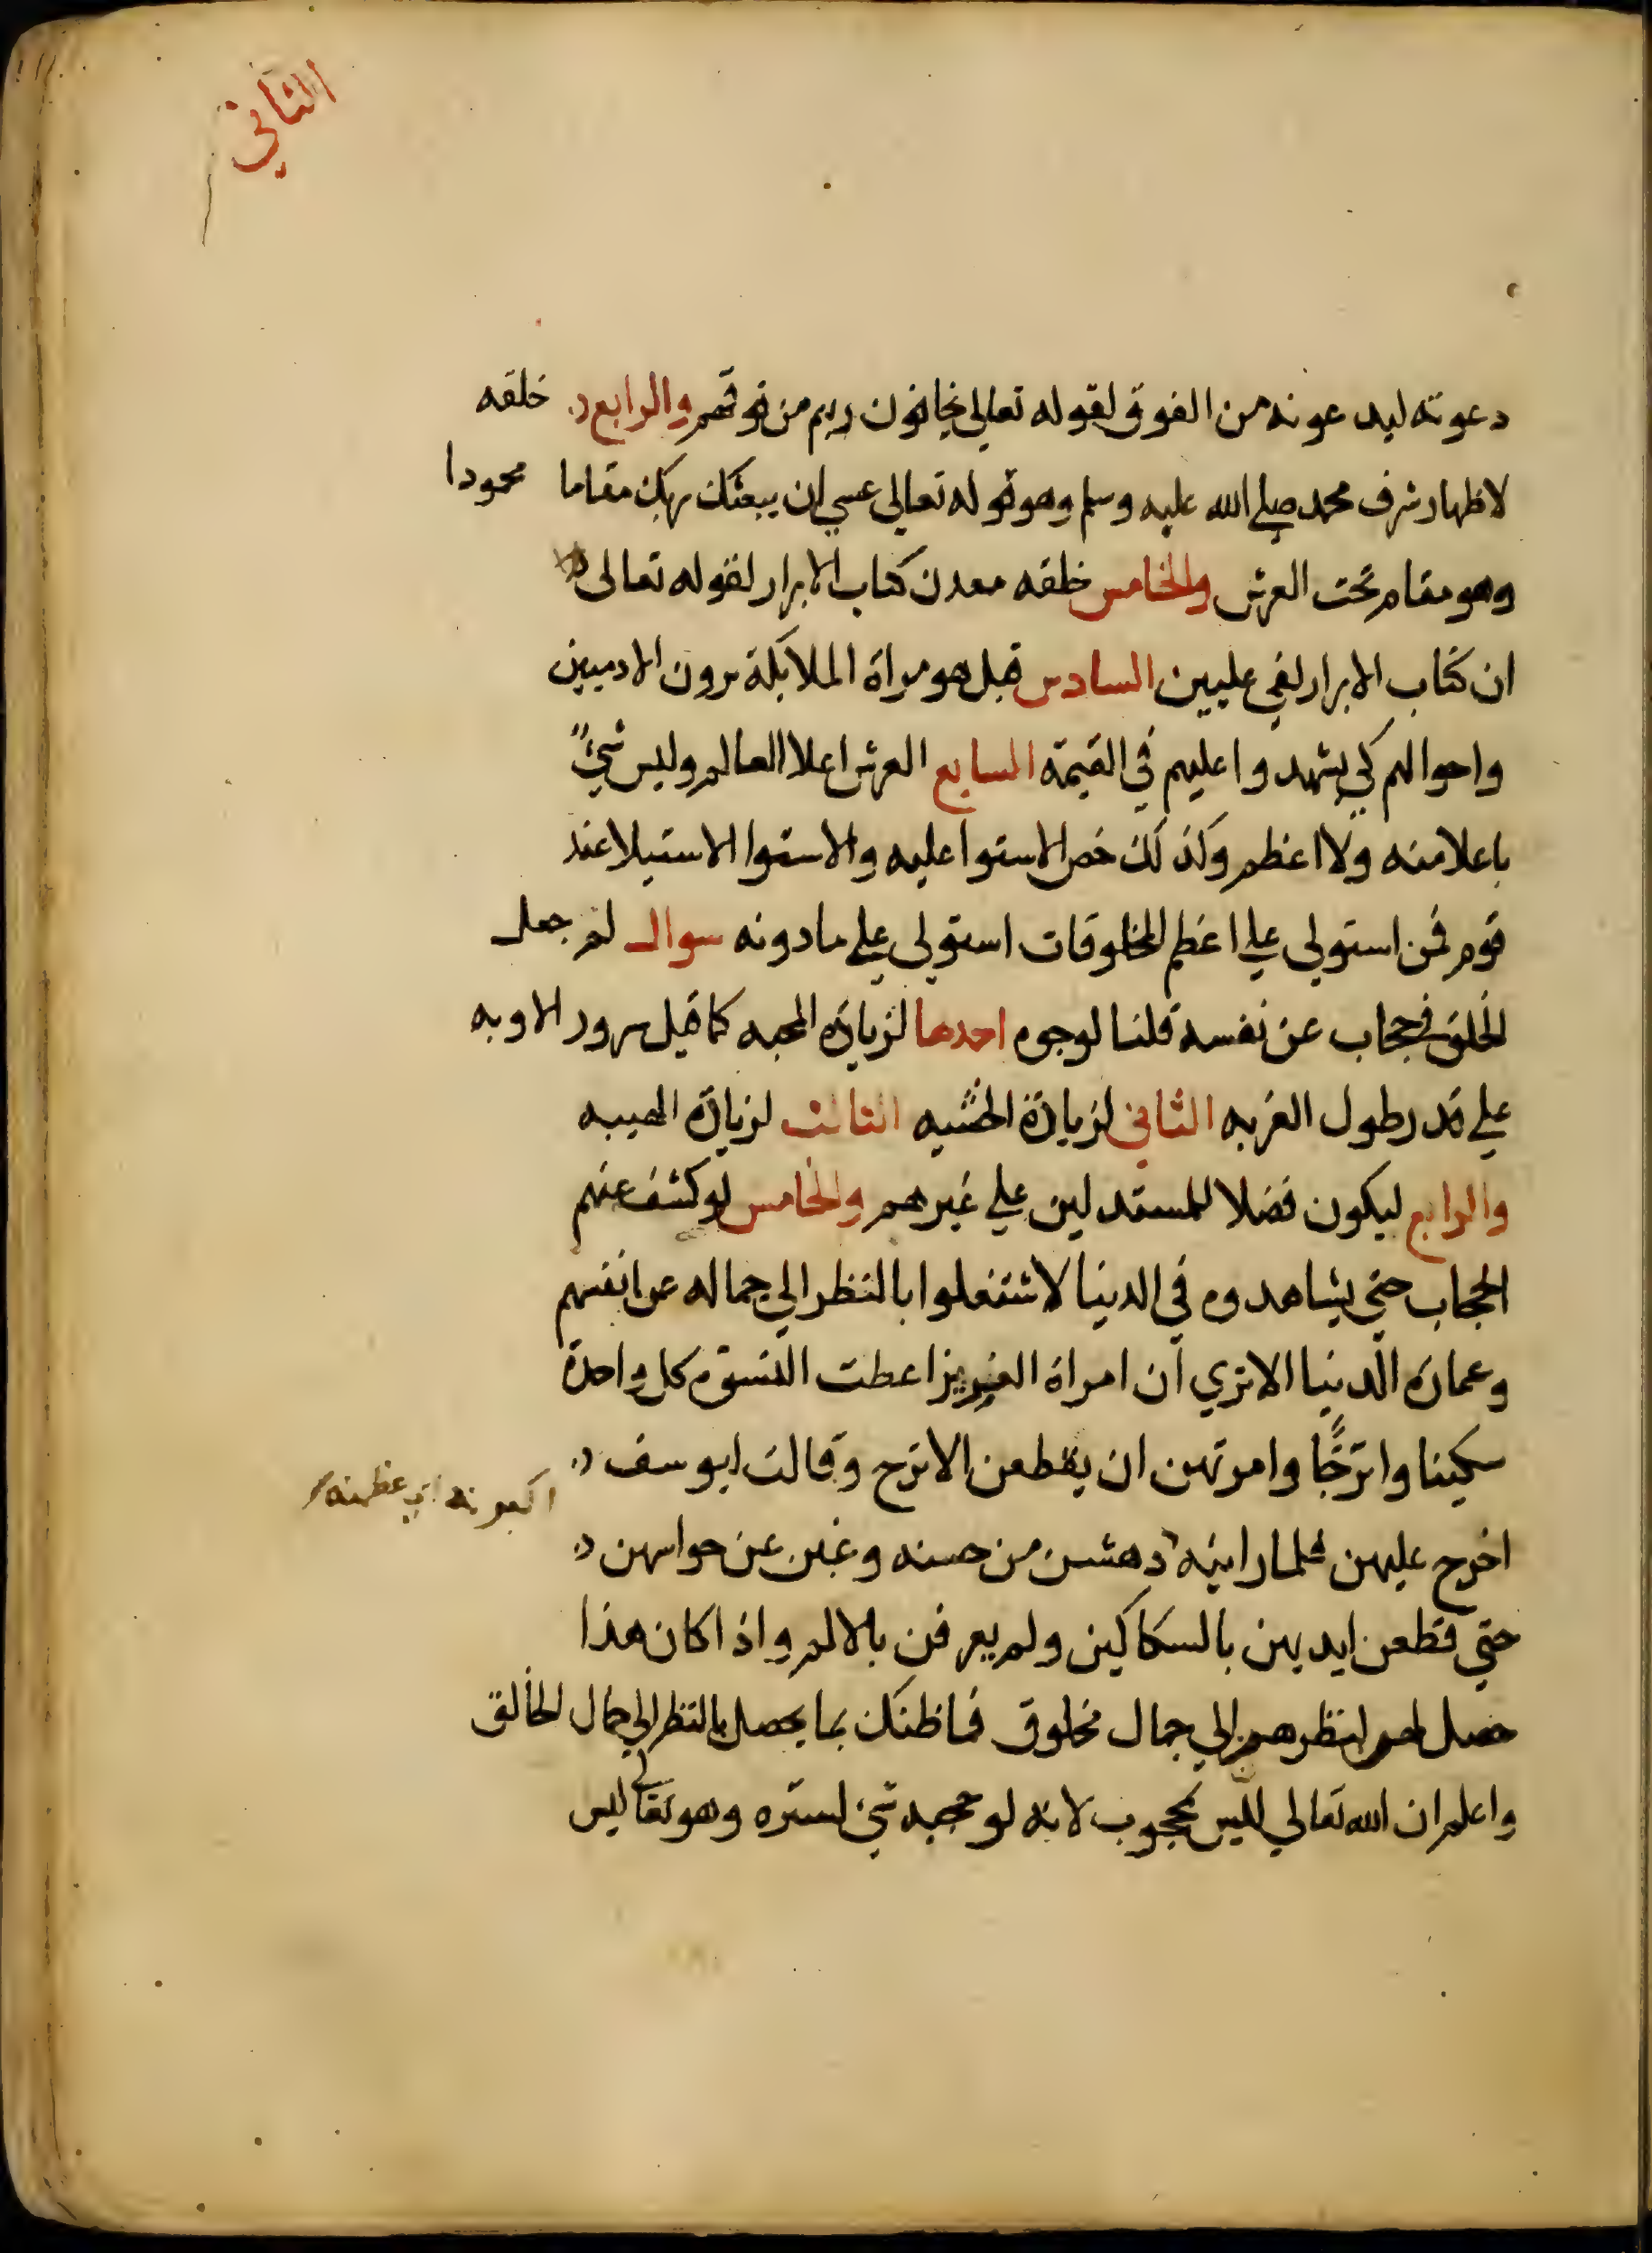 الثاني
دعوته ليدعونه من الفوق لقوله تعالي يخافون ربهم من فوقهم والرابع خلقه
لاظهار شرف محمد صلي الله عليه وسلم وهو قوله تعالي عسي ان يبعثك ربك مقاما محمودا
وهو مقام تحت العرش والخامس خلقه معدن كتاب الابرار لقوله تعالى
ان كتاب الابرار لفي عليين السادس قبل هو مراة الملايكة يرون الادميين
واحوالهم كي يشهدوا عليهم في القيمة السابع العرش اعلا العالم وليس شيئ
باعلا منه ولا اعظم وكذلك خص الاستوا عليه والاستوا الاستيلا عند
قوم فمن استولي علي اعظم المخلوقات استولي علي ما دونه سوال لم جعل
الخلق في حجاب عن نفسه قلنا لوجوه احدها لزيادة المحبه كما قيل سرور الاوبه
علي قدر طول الغربه الثاني لزيادة الخشيه الثالث لزيادة الهيبه
والرابع ليكون فضلا للمستدلين علي غيرهم والخامس لو كشف عنهم
الحجاب حتي يشاهدوه في الدنيا لاشتغلوا بالنظر الي جماله عن انفسهم
وعمارة الدنيا الا تري ان امراة العزيز اعطت النسوة كل واحدة
سكينا واترجًّا وامرتهن ان يقطعن الاترج وقالت ليوسف
اخرج عليهن فلما راينه دهشن من حسنه وغبن عن حواسهن
اكبرنه اي عظمنه
حتي قطعن ايديهن بالسكاكين ولم يعرفن بالالم واذا كان هذا
حصل لهم لنظرهم الي جمال مخلوق فما ظنك بما يحصل بالنظر الي جمال الخالق
واعلم ان الله تعالي ليس بمحجوب لانه لو حجبه شئ لستره وهو تعالي ليس